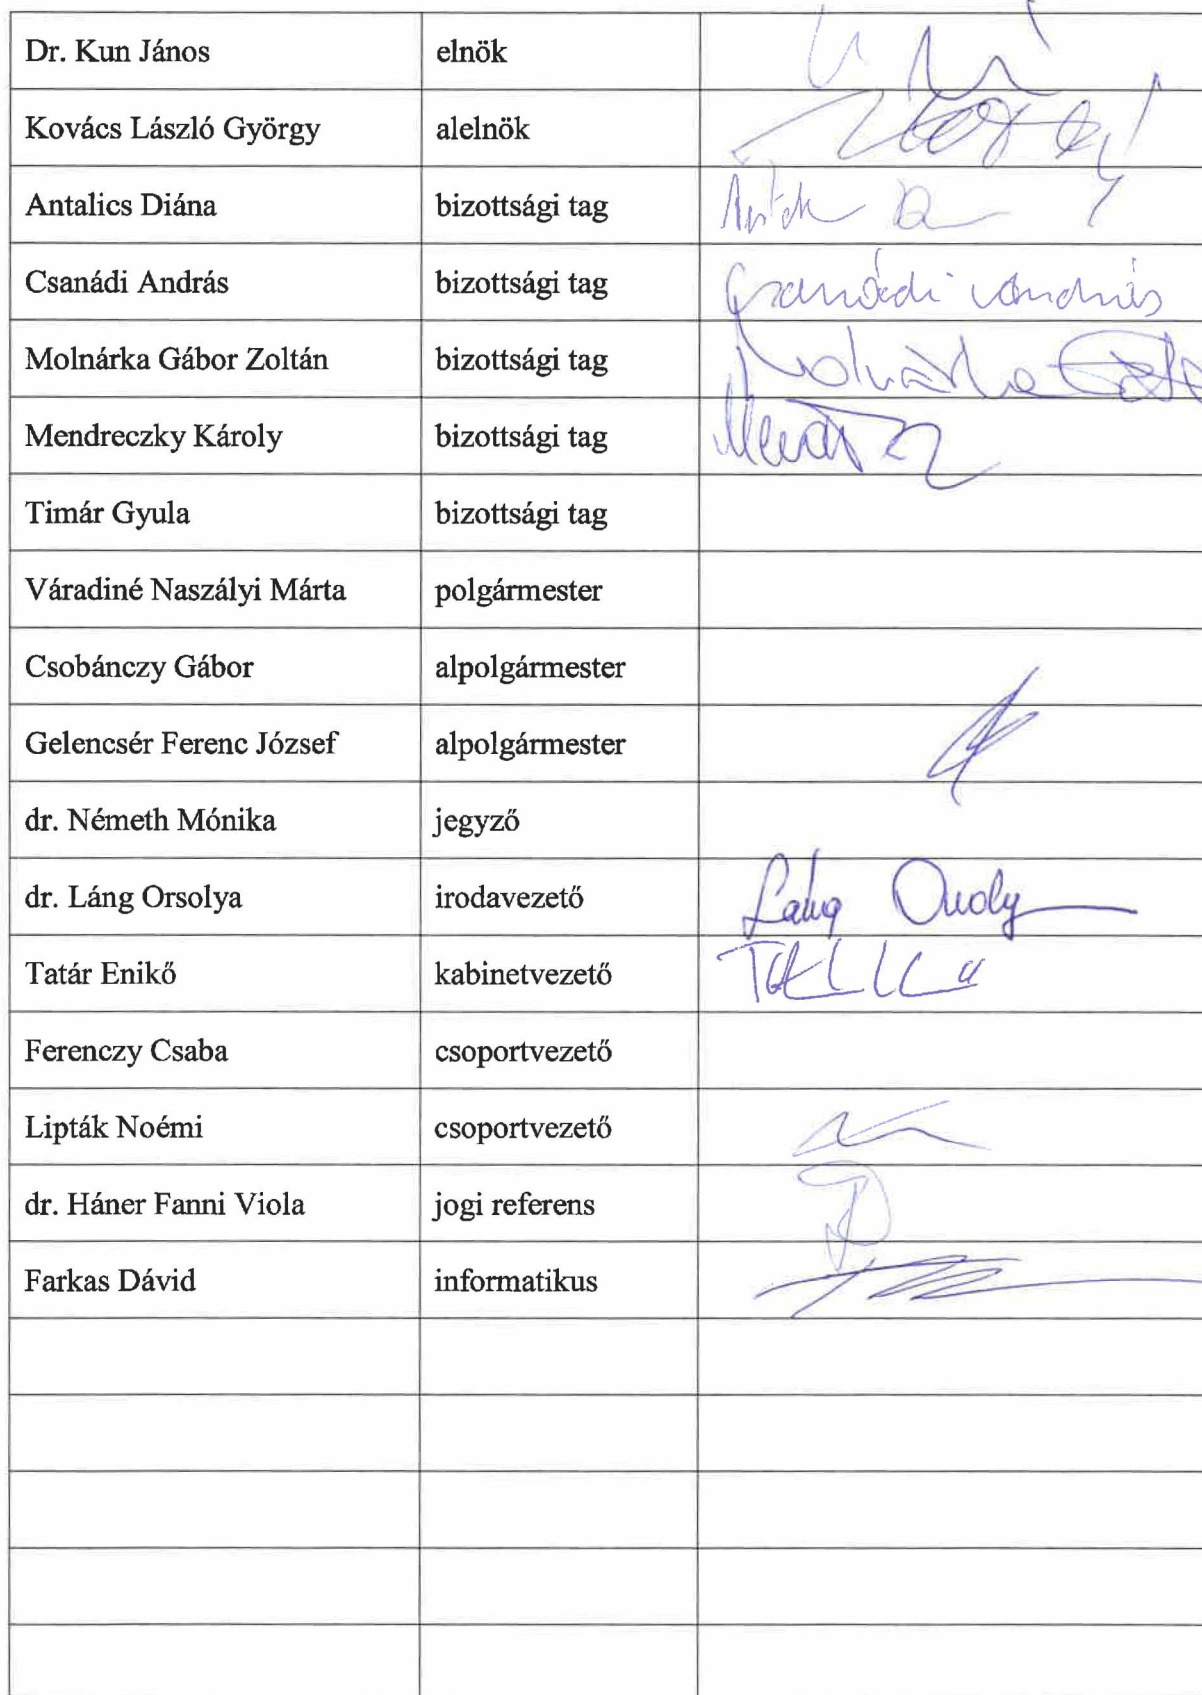 Dr. Kun János elnök
Kovács László György alelnök
Antalics Diána bizottsági tag
Csanádi András bizottsági tag Csanádi András
Molnárka Gábor Zoltán bizottsági tag Molnárka
Mendreczky Károly bizottsági tag
Timár Gyula bizottsági tag
Váradiné Naszályi Márta polgármester
Csobánczy Gábor alpolgármester
Gelencsér Ferenc József alpolgármester
dr. Németh Mónika jegyző
dr. Láng Orsolya irodavezető Láng
Tatár Enikő kabinetvezető
Ferenczy Csaba csoportvezető
Lipták Noémi csoportvezető
dr. Háner Fanni Viola jogi referens
Farkas Dávid informatikus